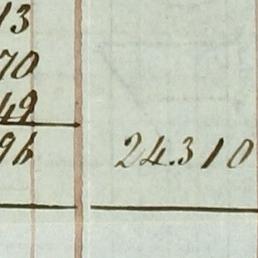 13
70
49
96 24.310